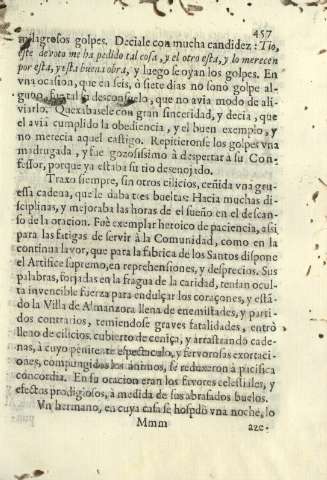 457
milagrosos golpes. Deciale con mucha candidez: Tio,
este devoto me ha pedido tal cosa, y el otro esta, y lo merecen
por esta, y esta buena obra, y luego se oyan los golpes. En
vna ocasion, que en seis, ò siete dias no sonó golpe al-
guno, fue tal la desconsuelo, que no avia modo de ali-
viarlo. Quexabasele con gran sinceridad, y decia, que
el avia cumplido la obediencia, y el buen exemplo, y
no merecia aquel castigo. Repitieronse los golpes vna
madrugada, y fuè gozosissimo à despertar a su Con-
fessor, porque ya estaba su tio desenojado.
Traxo siempre, sin otros cilicios, ceñida vna gru-
essa cadena, que le daba tres bueltas: Hacia muchas di-
sciplinas, y mejoraba las horas de el sueño en el descan-
so de la oracion. Fuè exemplar heroico de paciencia, assi
para las fatigas de servir à la Comunidad, como en la
continua lavor, que para la fabrica de los Santos dispone
el Artifice supremo, en reprehensiones, y desprecios. Sus
palabras, forjadas en la fragua de la caridad, tenian ocul-
ta invencible fuerza para endulçar los coraçones, y estã-
do la Villa de Almanzora llena de enemistades, y parti-
dos contrarios, temiendose graves fatalidades, entrò
lleno de cilicios, cubierto de ceniça, y arrastrando cade-
nas, à cuyo penitente espectaculo, y fervorosas exortaci-
ones, compungidos los animos, se reduxeron à pacifica
concordia. En su oracion eran los favores celestiales, y
efectos prodigiosos, à medida de sus abrasados buelos.
Vn hermano, en cuya casa se hospdò vna noche, lo
Mmm
aze-